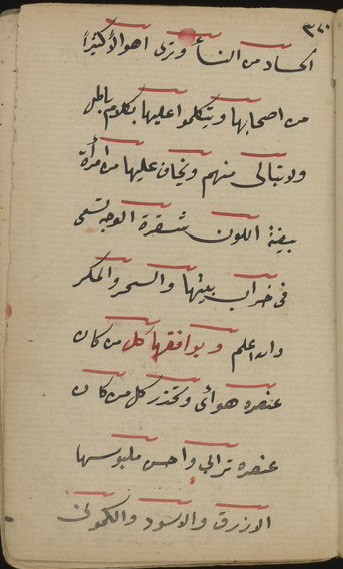 ٣٧٠
الحساد من النسأ وترى اهوالأ كثيرًا
من اصحابها ويتكلموا عليها بكلام باطل
ولا تبالى منهم ونخاف عليها من امرأة
بيضة اللون شقرة الوجه تسعى
فى خراب بيتها والسحر والمكر
والله اعلم ويوافقها كل من كان
عنصره هوأى وتحذر كل من كان
عنصره ترابي واحسن ملبوسها
الازرق والاسود والكمونى